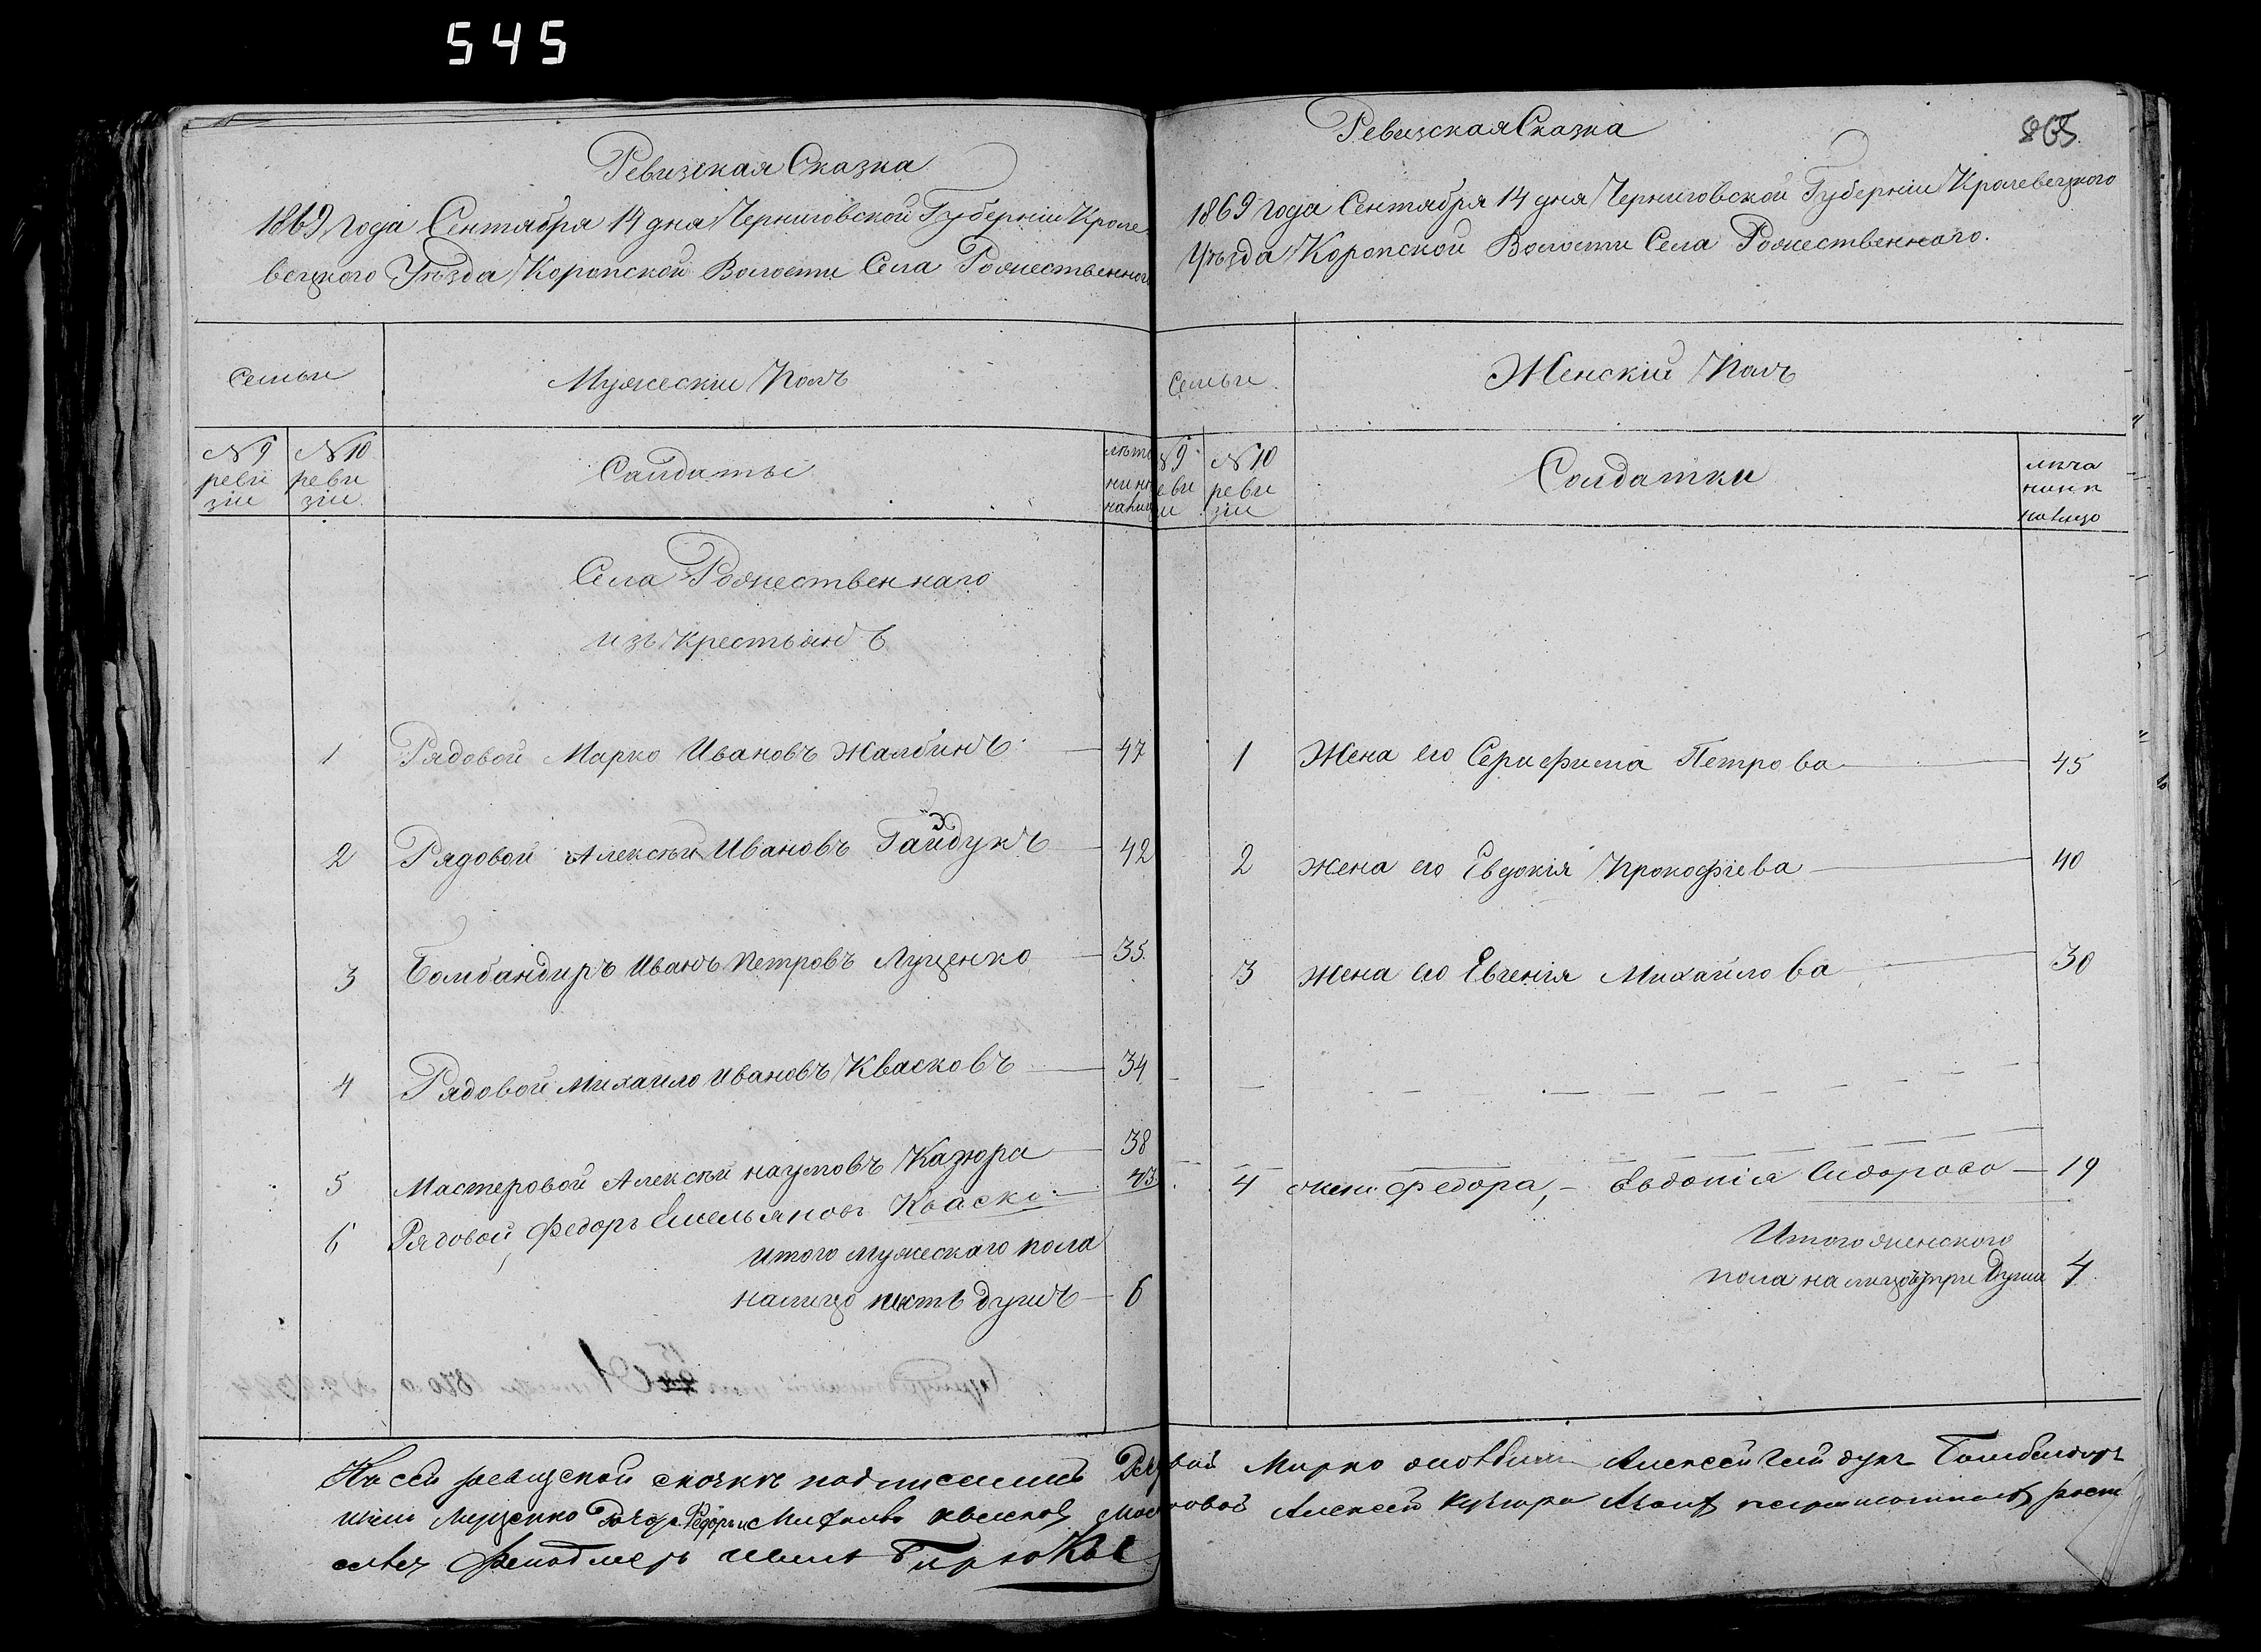 545
Ревизская Сказка
1869 года Сентября 14 дня Черниговской Губернiи Кроле
вецкого Уѣзда Коропской Волости Села Рожественного
Семьи
Мужескiй Полъ
№ 9 реви зiи
№ 10 реви зiи
Салдаты
лѣта нынѣ
Села Рожественнаго
изъ крестьянъ
1 Рядовой Марко Ивановъ Жалбинъ 47
2 Рядовой Алексѣй Ивановъ Гайдукъ 42
3 Бомбандиръ Иванъ Петровъ Луценко 35
4 Рядовой Михайло Ивановъ Квасковъ 34
5 Мастеровой Алексѣй Наумовъ Казюра 38
6 Рядовой, Федоръ Емельяновъ Кваско 43
Итого Мужескаго пола
налицо шесть душъ 6
865
Ревизская Сказка
1869 года Сентября 14 дня Черниговской Губернiи Кролевецкого
Уѣзда Коропской Волости Села Рожественнаго.
Семьи
Женскiй Полъ
№ 9
№ 10 реви зiи
Солдатки
лѣта нынѣ налицо
1 Жена его Серифима Петрова 45
2 Жена его Евдокiя Прокофiева 40
3 Жена его Евгенiя Михайлова 30
4 жена Федора, Евдокiя Сидорова 19
Итого женского
пола на лицо Души 4
Къ сей ревизской сказкѣ подписались Рядовой Марко Алексей Гайдукъ Бомбандиръ
Иванъ Луценко Федоръ и Михайло Квасковъ Мастеровой Алексей Казюра
Иванъ Бирюков